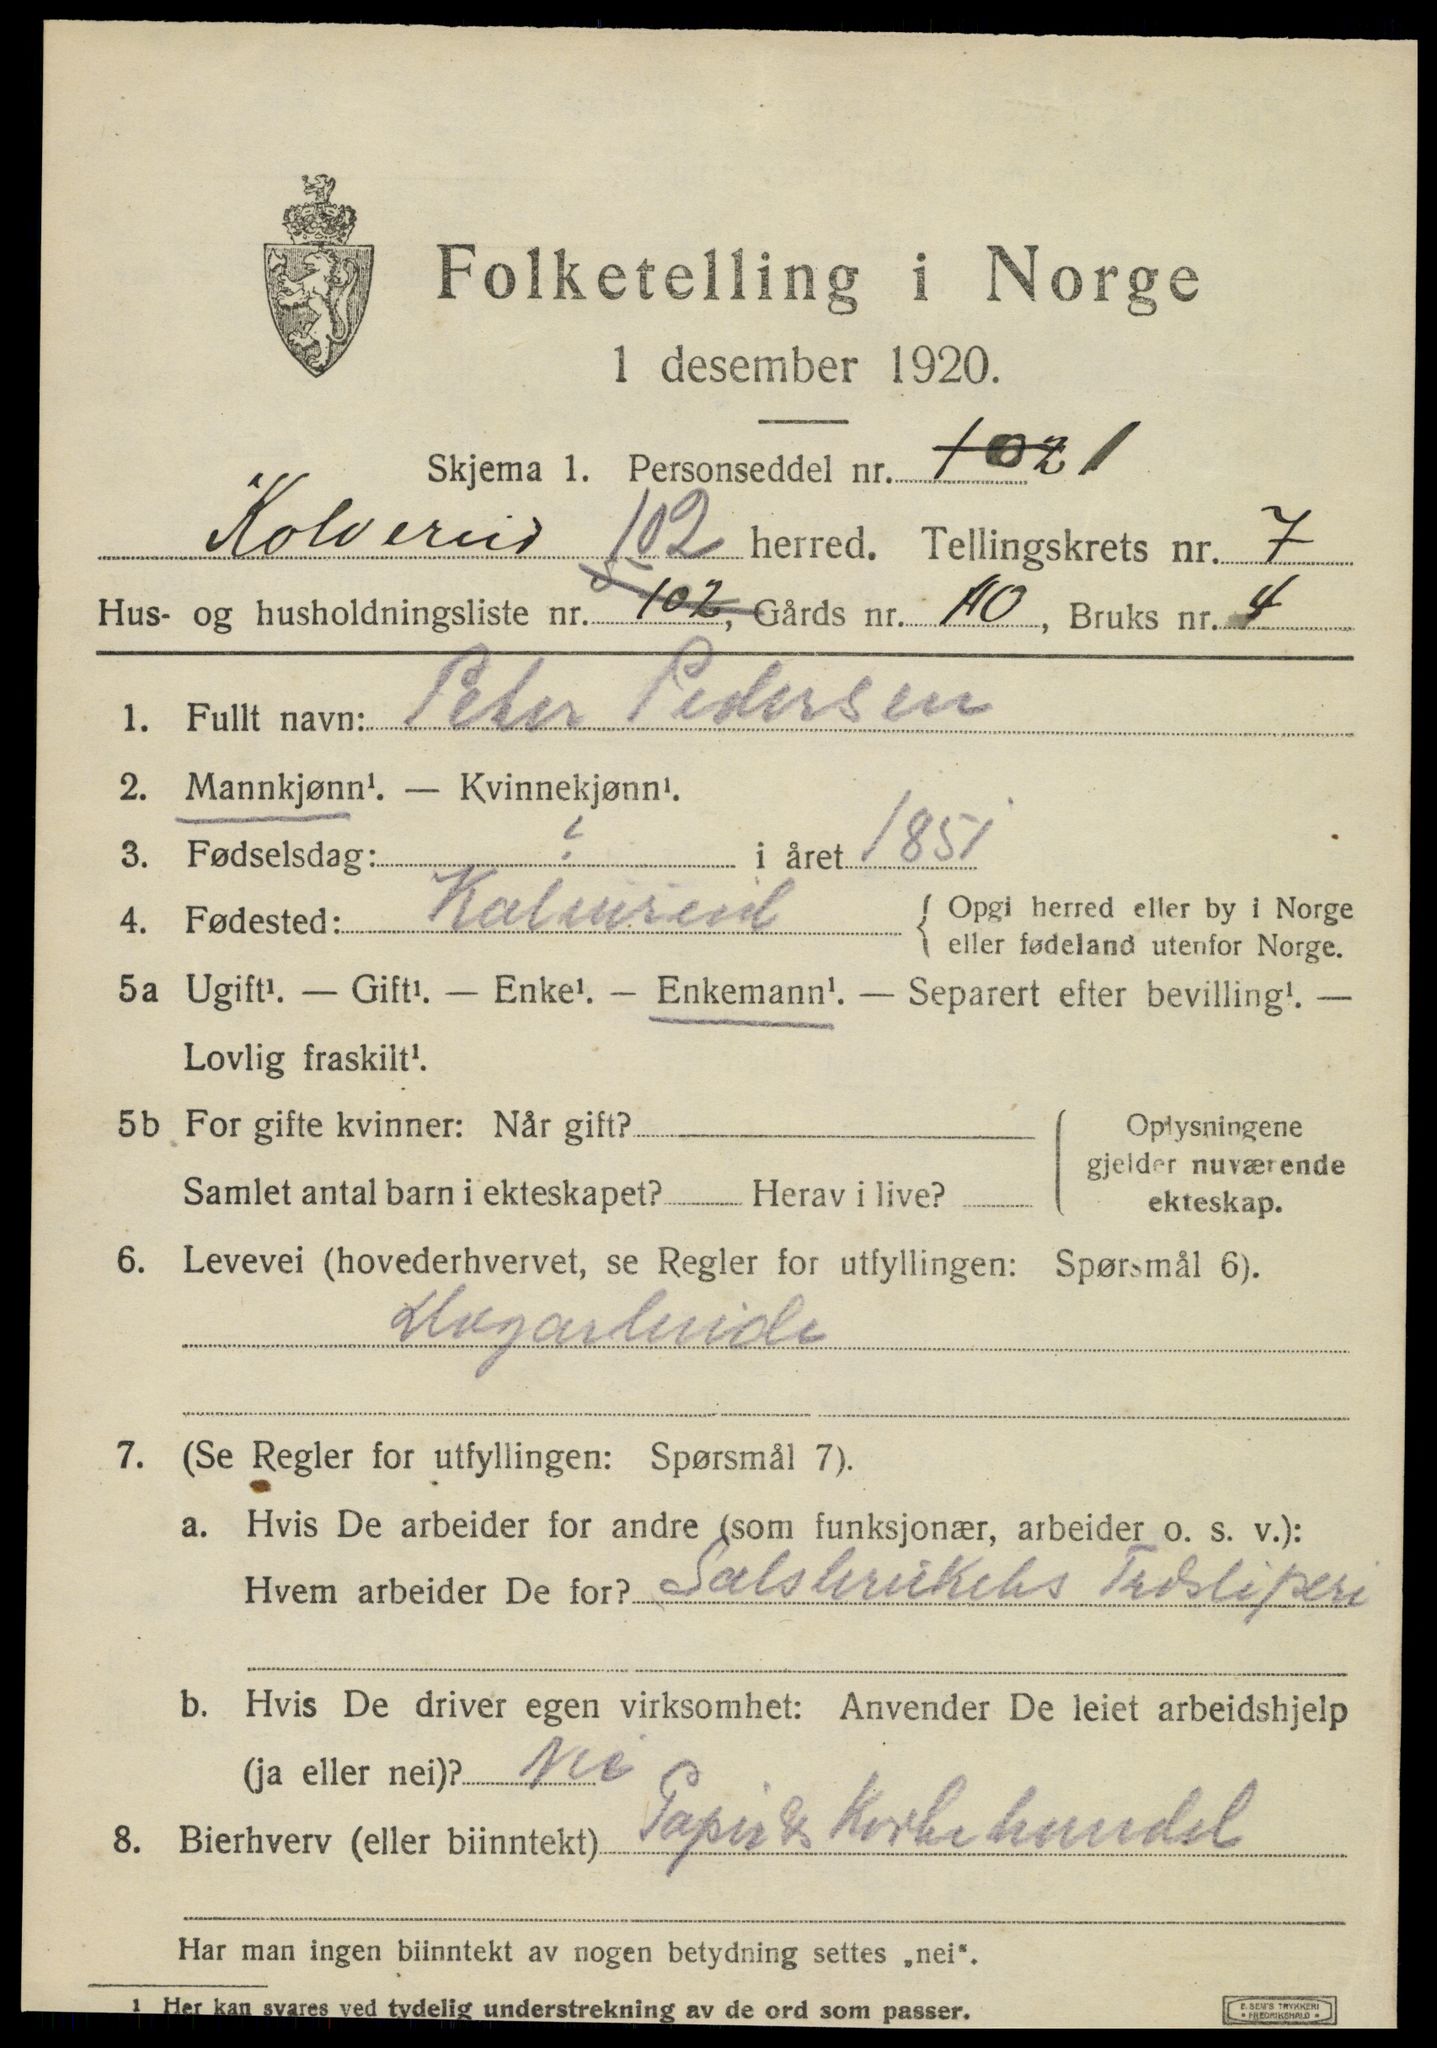 Folketelling i Norge
1 desember 1920.
Skjema 1. Personseddel nr. 102 1
Kolvereid 102 herred. Tellingskrets nr. 7
Hus- og husholdningsliste nr. 102, Gårds nr. 40, Bruks nr. 4
1. Fullt navn: Peter Pedersen
2. Mannkjønn¹. — Kvinnekjønn¹.
3. Fødselsdag: ? i året 1851
4. Fødested: Kolvereid { Opgi herred eller by i Norge
eller fødeland utenfor Norge.
5a Ugift¹. — Gift¹. — Enke¹. — Enkemann¹. — Separert efter bevilling¹. —
Lovlig fraskilt¹.
5b For gifte kvinner: Når gift?
Samlet antal barn i ekteskapet? Herav i live?
Oplysningene
gjelder nuværende
ekteskap.
6. Levevei (hovederhvervet, se Regler for utfyllingen: Spørsmål 6).
7. (Se Regler for utfyllingen: Spørsmål 7).
a. Hvis De arbeider for andre (som funksjonær, arbeider o. s. v.):
Hvem arbeider De for? Salsbrukets Træsliperi
b. Hvis De driver egen virksomhet: Anvender De leiet arbeidshjelp
(ja eller nei)? Nei
8. Bierhverv (eller biinntekt) Papir &
Har man ingen biinntekt av nogen betydning settes „nei“.
1 Her kan svares ved tydelig understrekning av de ord som passer.
E. SEM'S TRYKKERI
• FREDRIKSHALD •